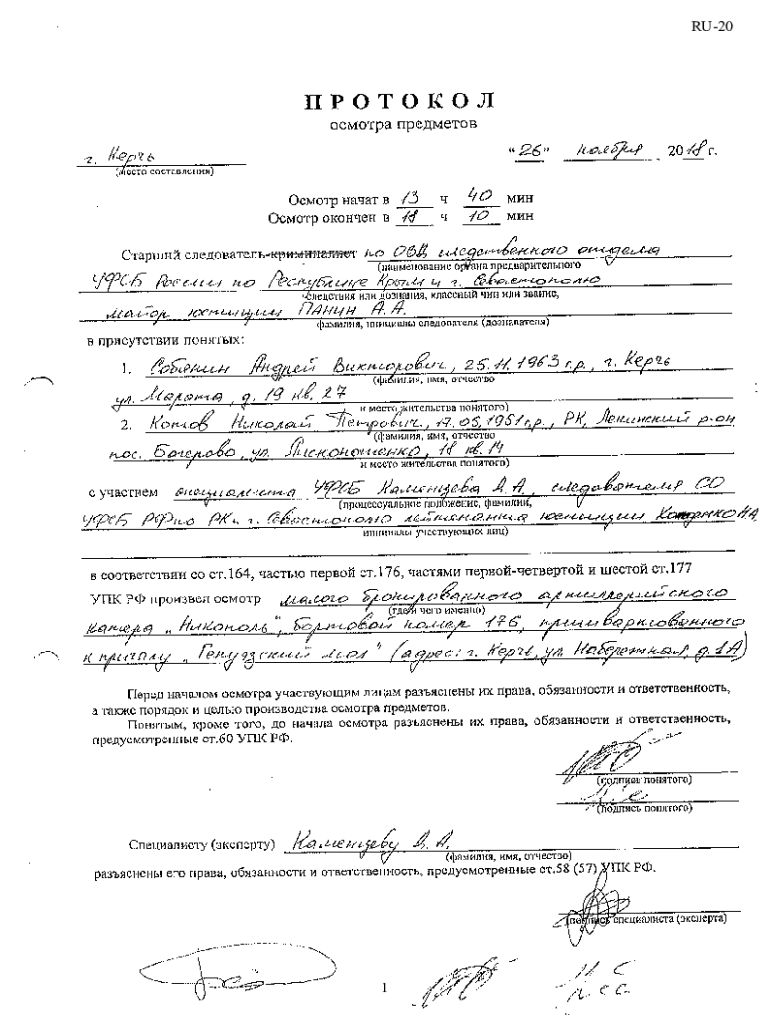 RU-20
ПРОТОКОЛ
осмотра предметов
г. Керчь "26" ноября 2018 г.
(место составления)
Осмотр начат в 13 ч 40 мин
Осмотр окончен в 18 ч 10 мин
Старший следователь-криминалист по ОВД следственного отдела
(наименование органа предварительного
УФСБ России по Республике Крым и г. Севастополю
следствия или дознания, классный чин или звание,
майор юстиции Панин А.А.
фамилия, инициалы следователя (дознавателя)
в присутствии понятых:
1. Собянин Андрей Викторович, 25.11.1963 г.р., г. Керчь
(фамилия, имя, отчество
ул. Марата, д. 19 кв. 27
и место жительства понятого)
2. Котов Николай Петрович, 17.05.1951 г.р., РК, Ленинский р-он
(фамилия, имя, отчество
пос. Багерово, ул. 18 кв. 14
и место жительства понятого)
с участием специалиста УФСБ Каменцева А.А., следователя СО
(процессуальное положение, фамилии,
УФСБ РФ по РК и г. Севастополю лейтенанта юстиции
инициалы участвующих лиц)
в соответствии со ст.164, частью первой ст.176, частями первой-четвертой и шестой ст.177
УПК РФ произвел осмотр малого бронированного артиллерийского
(где и чего именно)
катера „Никополь", бортовой номер 176, пришвартованного
к причалу „Генуэзский мол" (адрес: г. Керчь, ул. Набережная, д. 1А)
Перед началом осмотра участвующим лицам разъяснены их права, обязанности и ответственность,
а также порядок и целью производства осмотра предметов.
Понятым, кроме того, до начала осмотра разъяснены их права, обязанности и ответственность,
предусмотренные ст.60 УПК РФ.
(подпись понятого)
(подпись понятого)
Специалисту (эксперту) Каменцеву А.А.
(фамилия, имя, отчество)
разъяснены его права, обязанности и ответственность, предусмотренные ст.58 (57) УПК РФ.
(подпись специалиста (эксперта)
1